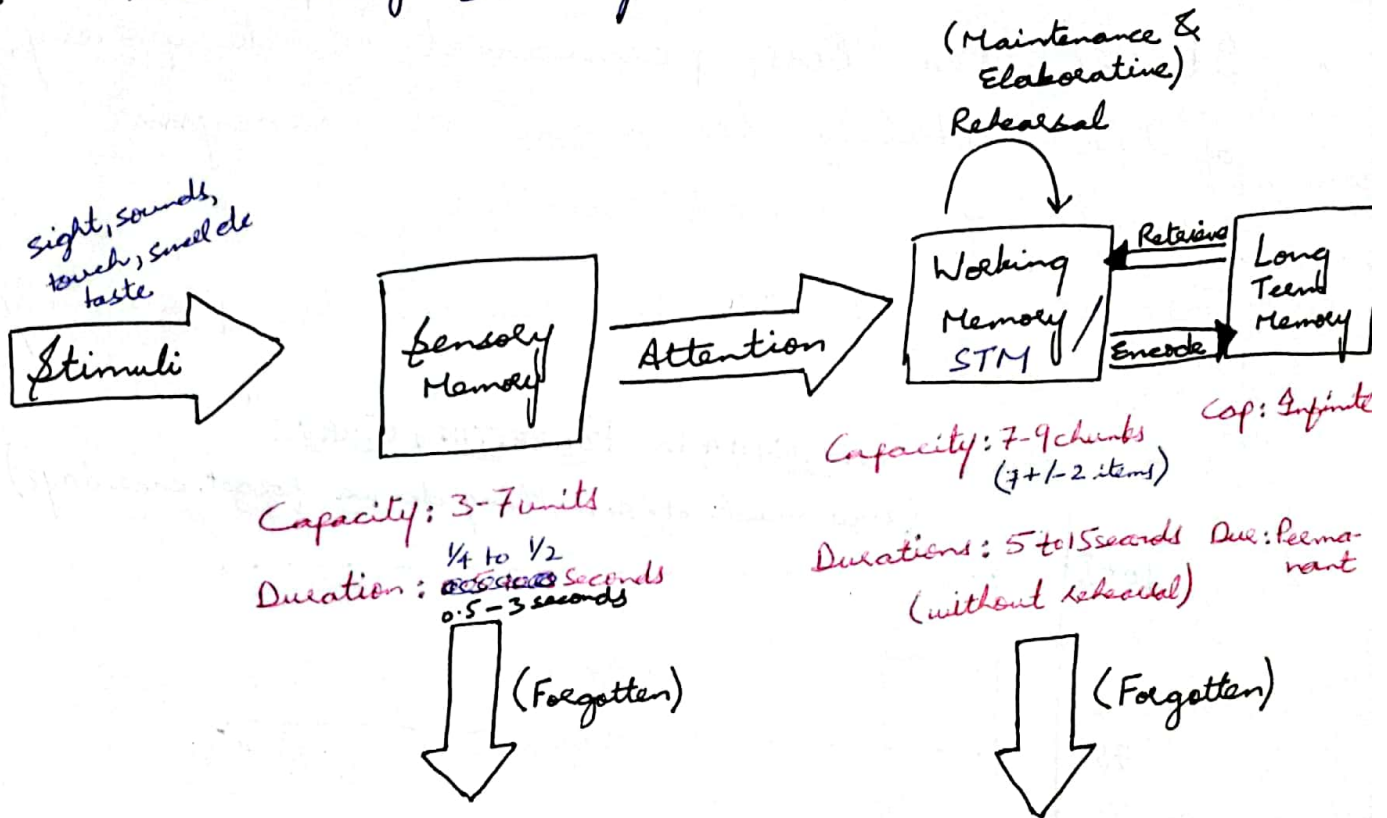 (Maintenance &
Elaborative)
Rehearsal
sight, sounds,
touch, smell &
taste
Stimuli
Sensory
Memory
Attention
Working
Memory/
STM
Retrieve
Encode
Long
Term
Memory
Capacity: 3-7 units
1/4 to 1/2
Duration: seconds
0.5-3 seconds
(Forgotten)
Capacity: 7-9 chunks
(7+/-2 items)
Durations: 5 to 15 seconds
(without rehearsal)
Cap: Infinite
Dur: Perma-
nant
(Forgotten)